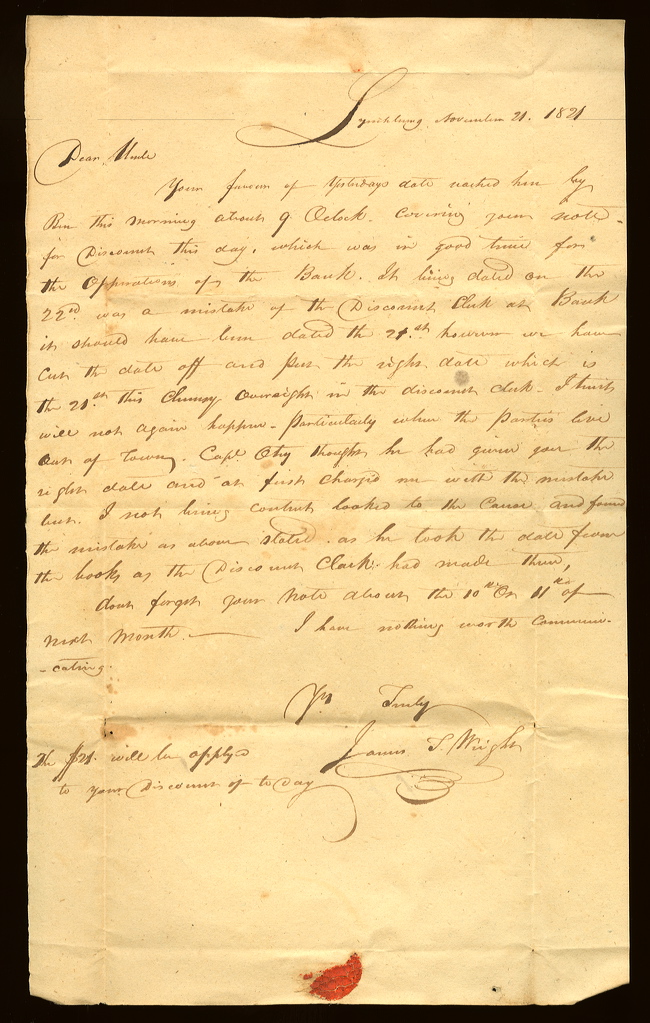 Lynchburg November 21. 1821
Dear Uncle
Your favour of Yesterdays date reached him by
Ben this morning about 9 Oclock. Covering your note
for Discount this day, which was in good time for
the Opperations of the Bank. It being dated on the
22nd was a mistake of the Discount Clerk at Bank
it should have been dated the 21st however we have
Cut the date off and put the right date which is
the 21st this Clumsy Oversight in the discount clerk. I trust
will not again happen. Particularly when the Parties live
Out of Town. Capt. Otey thought he had given you the
right date and at first charged me with the mistake
but I not being content looked to the Cause and found
the mistake as above stated. as he took the date from
the books as the Discount Clark had made them,
dont forget your Note about the 10th Or 11th of
next Month. I have nothing worth Communi-
-cating.
Yrs Truly
James S. Wright
The $21. will be applyd
to your Discount of to Day